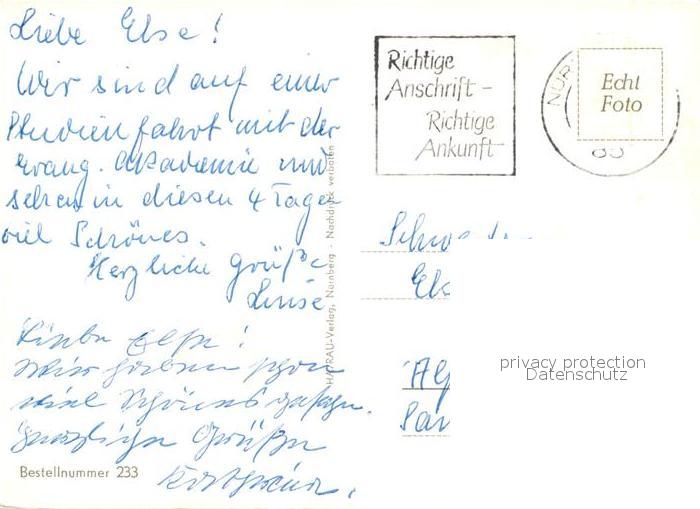 Liebe Else!
Wir sind auf einer
Studienfahrt mit der
evang. Akademie und
sehen in diesen 4 Tagen
viel Schönes.
Herzliche Grüße
Luise
Liebe Else!
Wir haben schon
viel Schönes gesehen.
Herzliche Grüße
Bestellnummer 233
-Verlag, Nürnberg - Nachdruck verboten
Richtige
Anschrift -
Richtige
Ankunft
NÜR
Echt
Foto
Schwester
privacy protection
Datenschutz